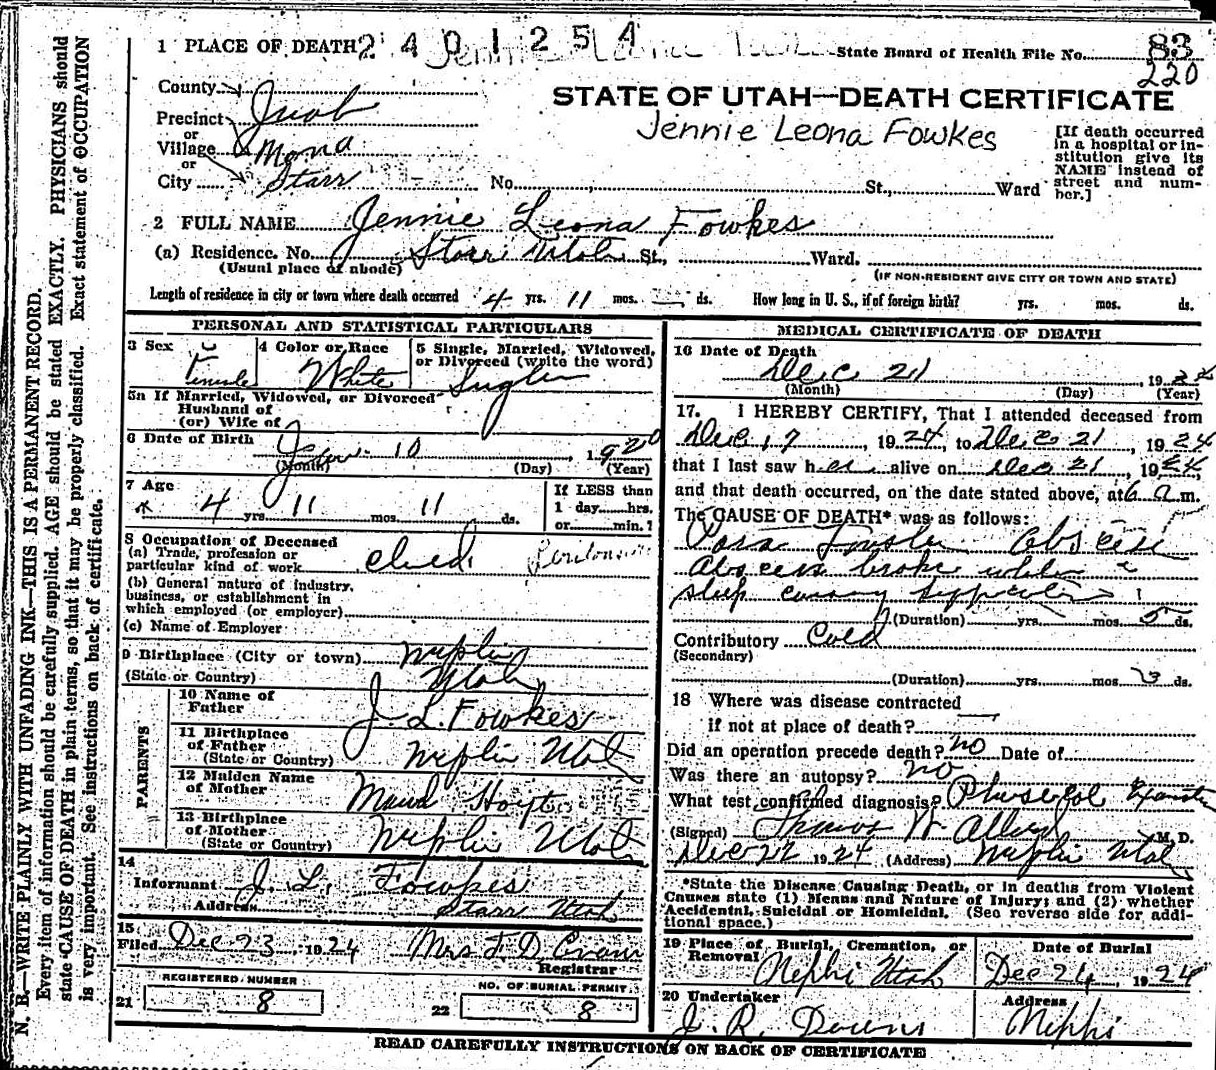 1 PLACE OF DEATH 2401254
State Board of Health File No. 83
220
County Juab
STATE OF UTAH—DEATH CERTIFICATE
Jennie Leona Fowkes
Precinct
or
Village Mona
or
City Starr No. , St., Ward
[If death occurred
in a hospital or in-
stitution give its
NAME instead of
street and num-
ber.]
2 FULL NAME Jennie Leona Fowkes
(a) Residence. No. Starr Utah St., Ward.
(Usual place of abode) (IF NON-RESIDENT GIVE CITY OR TOWN AND STATE)
Length of residence in city or town where death occurred 4 yrs. 11 mos. — ds. How long in U. S., if of foreign birth? yrs. mos. ds.
PERSONAL AND STATISTICAL PARTICULARS
3 Sex Female
4 Color or Race White
5 Single, Married, Widowed,
or Divorced (write the word) Single
5a If Married, Widowed, or Divorced
Husband of
(or) Wife of
6 Date of Birth 10, 1920
(Month) (Day) (Year)
7 Age 4 yrs. 11 mos. 11 ds.
If LESS than
1 day hrs.
or min.?
8 Occupation of Deceased
(a) Trade, profession or
particular kind of work
(b) General nature of industry,
business, or establishment in
which employed (or employer)
(c) Name of Employer
9 Birthplace (City or town) Nephi
(State or Country) Utah
PARENTS
10 Name of
Father J. L. Fowkes
11 Birthplace
of Father Nephi Utah
(State or Country)
12 Maiden Name
of Mother Maud Hoyt
13 Birthplace
of Mother Nephi Utah
(State or Country)
14
Informant J. L. Fowkes
Address Starr Utah
15
Filed Dec 23, 1924 Mrs F. D. Evans
Registrar
REGISTERED NUMBER
21 8
NO. OF BURIAL PERMIT
22 8
MEDICAL CERTIFICATE OF DEATH
16 Date of Death
Dec 21, 1924
(Month) (Day) (Year)
17. I HEREBY CERTIFY, That I attended deceased from
Dec 17, 1924, to Dec 21, 1924
that I last saw her alive on Dec 21, 1924,
and that death occurred, on the date stated above, at 6 a m.
The CAUSE OF DEATH* was as follows:
Abscess
abscess broke while
sleep
(Duration) yrs. mos. 5 ds.
Contributory Cold
(Secondary)
(Duration) yrs. mos. ds.
18 Where was disease contracted
if not at place of death?
Did an operation precede death? no Date of
Was there an autopsy? no
What test confirmed diagnosis? Physical
(Signed) M. D.
Dec 22 1924 (Address) Nephi Utah
*State the Disease Causing Death, or in deaths from Violent
Causes state (1) Means and Nature of Injury; and (2) whether
Accidental, Suicidal or Homicidal. (See reverse side for addi-
tional space.)
19 Place of Burial, Cremation, or
Removal Nephi Utah
Date of Burial
Dec 24, 1924
20 Undertaker
J. R. Downs
Address
Nephi
READ CAREFULLY INSTRUCTIONS ON BACK OF CERTIFICATE
N. B.—WRITE PLAINLY WITH UNFADING INK—THIS IS A PERMANENT RECORD.
Every item of information should be carefully supplied. AGE should be stated EXACTLY. PHYSICIANS should
state CAUSE OF DEATH in plain terms, so that it may be properly classified. Exact statement of OCCUPATION
is very important. See instructions on back of certificate.